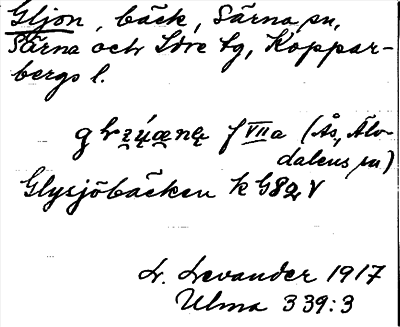 Gljon, bäck, Särna sn,
Särna och Idre tg, Koppar-
bergs l.
f VII a (Ås, Älv-
dalens sn)
Glysjöbäcken k G82 V
L. Levander 1917
Ulma 339:3